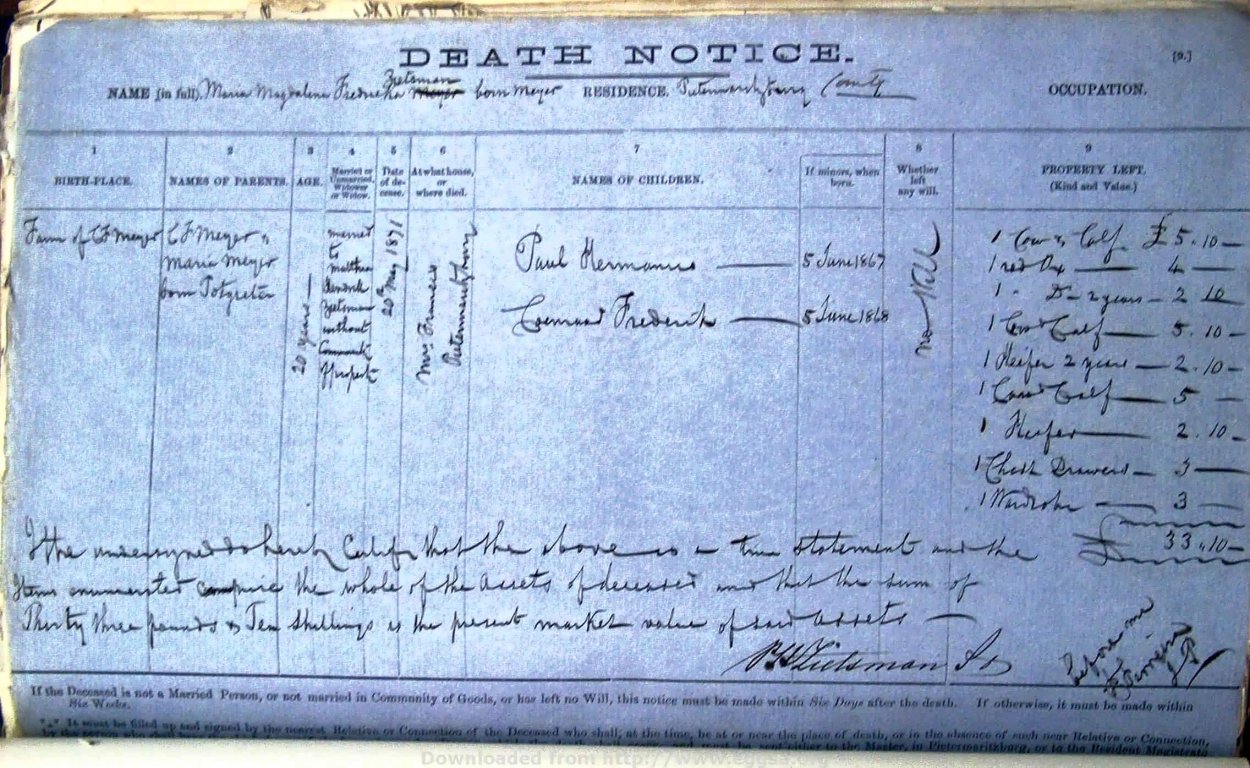 DEATH NOTICE.
[9.]
Zietsman
NAME [in full]. Maria Magdalena Fredrecka Meyer born Meyer RESIDENCE. Pietermaritzburg County OCCUPATION.
1 2 3 4 5 6 7 8 9
BIRTH-PLACE. NAMES OF PARENTS. AGE. Married or Unmarried, Widower or Widow. Date of decease. At what house, or where died. NAMES OF CHILDREN. If minors, when born. Whether left any will. PROPERTY LEFT. (Kind and Value.)
Farm of CF Meyer
CF Meyer &
Maria Meyer
born Potgieter
20 years
married
to
Hendrik
Zietsman
without
Community
of property
20 May 1871
Mrs
Pietermaritzburg
Paul Hermanus 5 June 1867
Coenraad Frederik 5 June 1868
no Will
1 Cow & Calf £ 5. 10 —
1 red Ox — 4 —
1 " Do — 2 years — 2 10
1 Cow & Calf — 5. 10 —
1 Heifer 2 years — 2. 10 —
1 Cow & Calf — 5 —
1 Heifer — 2. 10 —
1 Chest Drawers — 3 —
1 Wardrobe — 3 —
£ 33 „ 10 —
I the undersigned do hereby Certify that the above is a true statement and the
Items enumerated comprise the whole of the assets of deceased and that the sum of
Thirty three pounds & Ten Shillings is the present market value of said assets —
Zietsman Sr
before me
JP
If the Deceased is not a Married Person, or not married in Community of Goods, or has left no Will, this notice must be made within Six Days after the death. If otherwise, it must be made within
Six Weeks.
*** It must be filled up and signed by the nearest Relative or Connection of the Deceased who shall, at the time, be at or near the place of death, or in the absence of such near Relative or Connection,
by the person who shall
to the Master, in Pietermaritzburg, or to the Resident Magistrate
Downloaded from http://www.eggsa.org